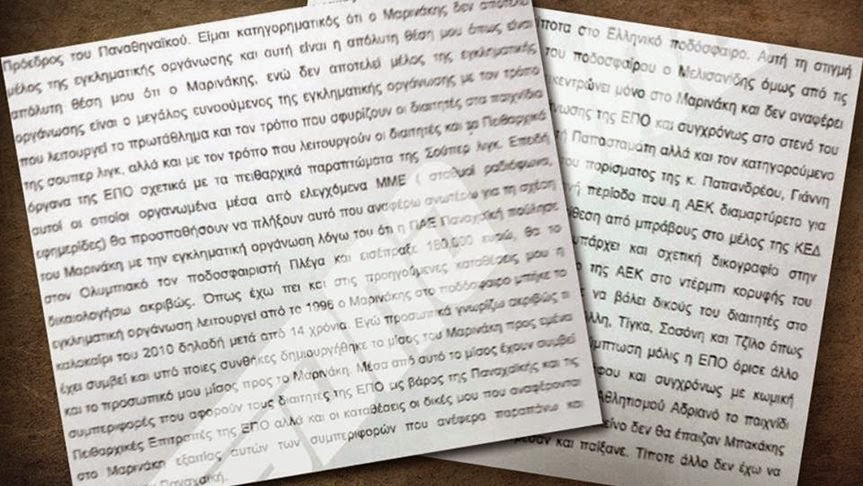 Πρόεδρος του Παναθηναϊκού. Είμαι κατηγορηματικός ότι ο Μαρινάκης δεν αποτελεί
μέλος της εγκληματικής οργάνωσης και αυτή είναι η απόλυτη θέση μου όπως είναι
απόλυτη θέση μου ότι ο Μαρινάκης, ενώ δεν αποτελεί μέλος της εγκληματικής
οργάνωσης είναι ο μεγάλος ευνοούμενος της εγκληματικής οργάνωσης με τον τρόπο
που λειτουργεί το πρωτάθλημα και τον τρόπο που σφυρίζουν οι διαιτητές στα παιχνίδια
της σουπερ λιγκ, αλλά και με τον τρόπο που λειτουργούν οι διαιτητές και τα Πειθαρχικά
όργανα της ΕΠΟ σχετικά με τα πειθαρχικά παραπτώματα της Σούπερ λιγκ. Επειδή
αυτοί οι οποίοι οργανωμένα μέσα από ελεγχόμενα ΜΜΕ ( σταθμοί ραδιόφωνα,
εφημερίδες) θα προσπαθήσουν να πλήξουν αυτό που αναφέρω ανωτέρω για τη σχέση
του Μαρινάκη με την εγκληματική οργάνωση λόγω του ότι η ΠΑΕ Παναχαϊκή πούλησε
στον Ολυμπιακό τον ποδοσφαιριστή Πλέγα και εισέπραξε 180.000 ευρώ, θα το
δικαιολογήσω ακριβώς. Όπως έχω πει και στις προηγούμενες καταθέσεις μου η
εγκληματική οργάνωση λειτουργεί από το 1996 ο Μαρινάκης στο ποδόσφαιρο μπήκε το
καλοκαίρι του 2010 δηλαδή μετά από 14 χρόνια. Εγώ προσωπικά γνωρίζω ακριβώς τι
έχει συμβεί και υπό ποιες συνθήκες δημιουργήθηκε το μίσος του Μαρινάκη προς εμένα
και το προσωπικό μου μίσος προς το Μαρινάκη. Μέσα από αυτό το μίσος έχουν συμβεί
συμπεριφορές που αφορούν τους διαιτητές της ΕΠΟ εις βάρος της Παναχαϊκής και τις
Πειθαρχικές Επιτροπές της ΕΠΟ αλλά και οι καταθέσεις οι δικές μου που αναφέρονται
στο Μαρινάκη εξαιτίας αυτών των συμπεριφορών που ανέφερα παραπάνω και
Παναχαϊκή.
ποτα στο Ελληνικό ποδόσφαιρο. Αυτή τη στιγμή
του ποδοσφαίρου ο Μελισανίδης όμως από τις
κεντρώνει μόνο στο Μαρινάκη και δεν αναφέρει
νωσης της ΕΠΟ και συγχρόνως στο στενό του
Παπασταμάτη αλλά και τον κατηγορούμενο
του πορίσματος της κ. Παπανδρέου, Γιάννη
περίοδο που η ΑΕΚ διαμαρτύρετο για
θεση από μπράβους στο μέλος της ΚΕΔ
υπάρχει και σχετική δικογραφία στην
της ΑΕΚ στο ντέρμπι κορυφής του
να βάλει δικούς του διαιτητές στο
λλη, Τίγκα, Σοσόνη και Τζίλο όπως
μπτωση μόλις η ΕΠΟ όρισε άλλο
φου και συγχρόνως με κωμική
Αθλητισμού Αδριανό το παιχνίδι
είνο δεν θα έπαιζαν Μπακάκης
και παίξανε. Τίποτε άλλο δεν έχω να